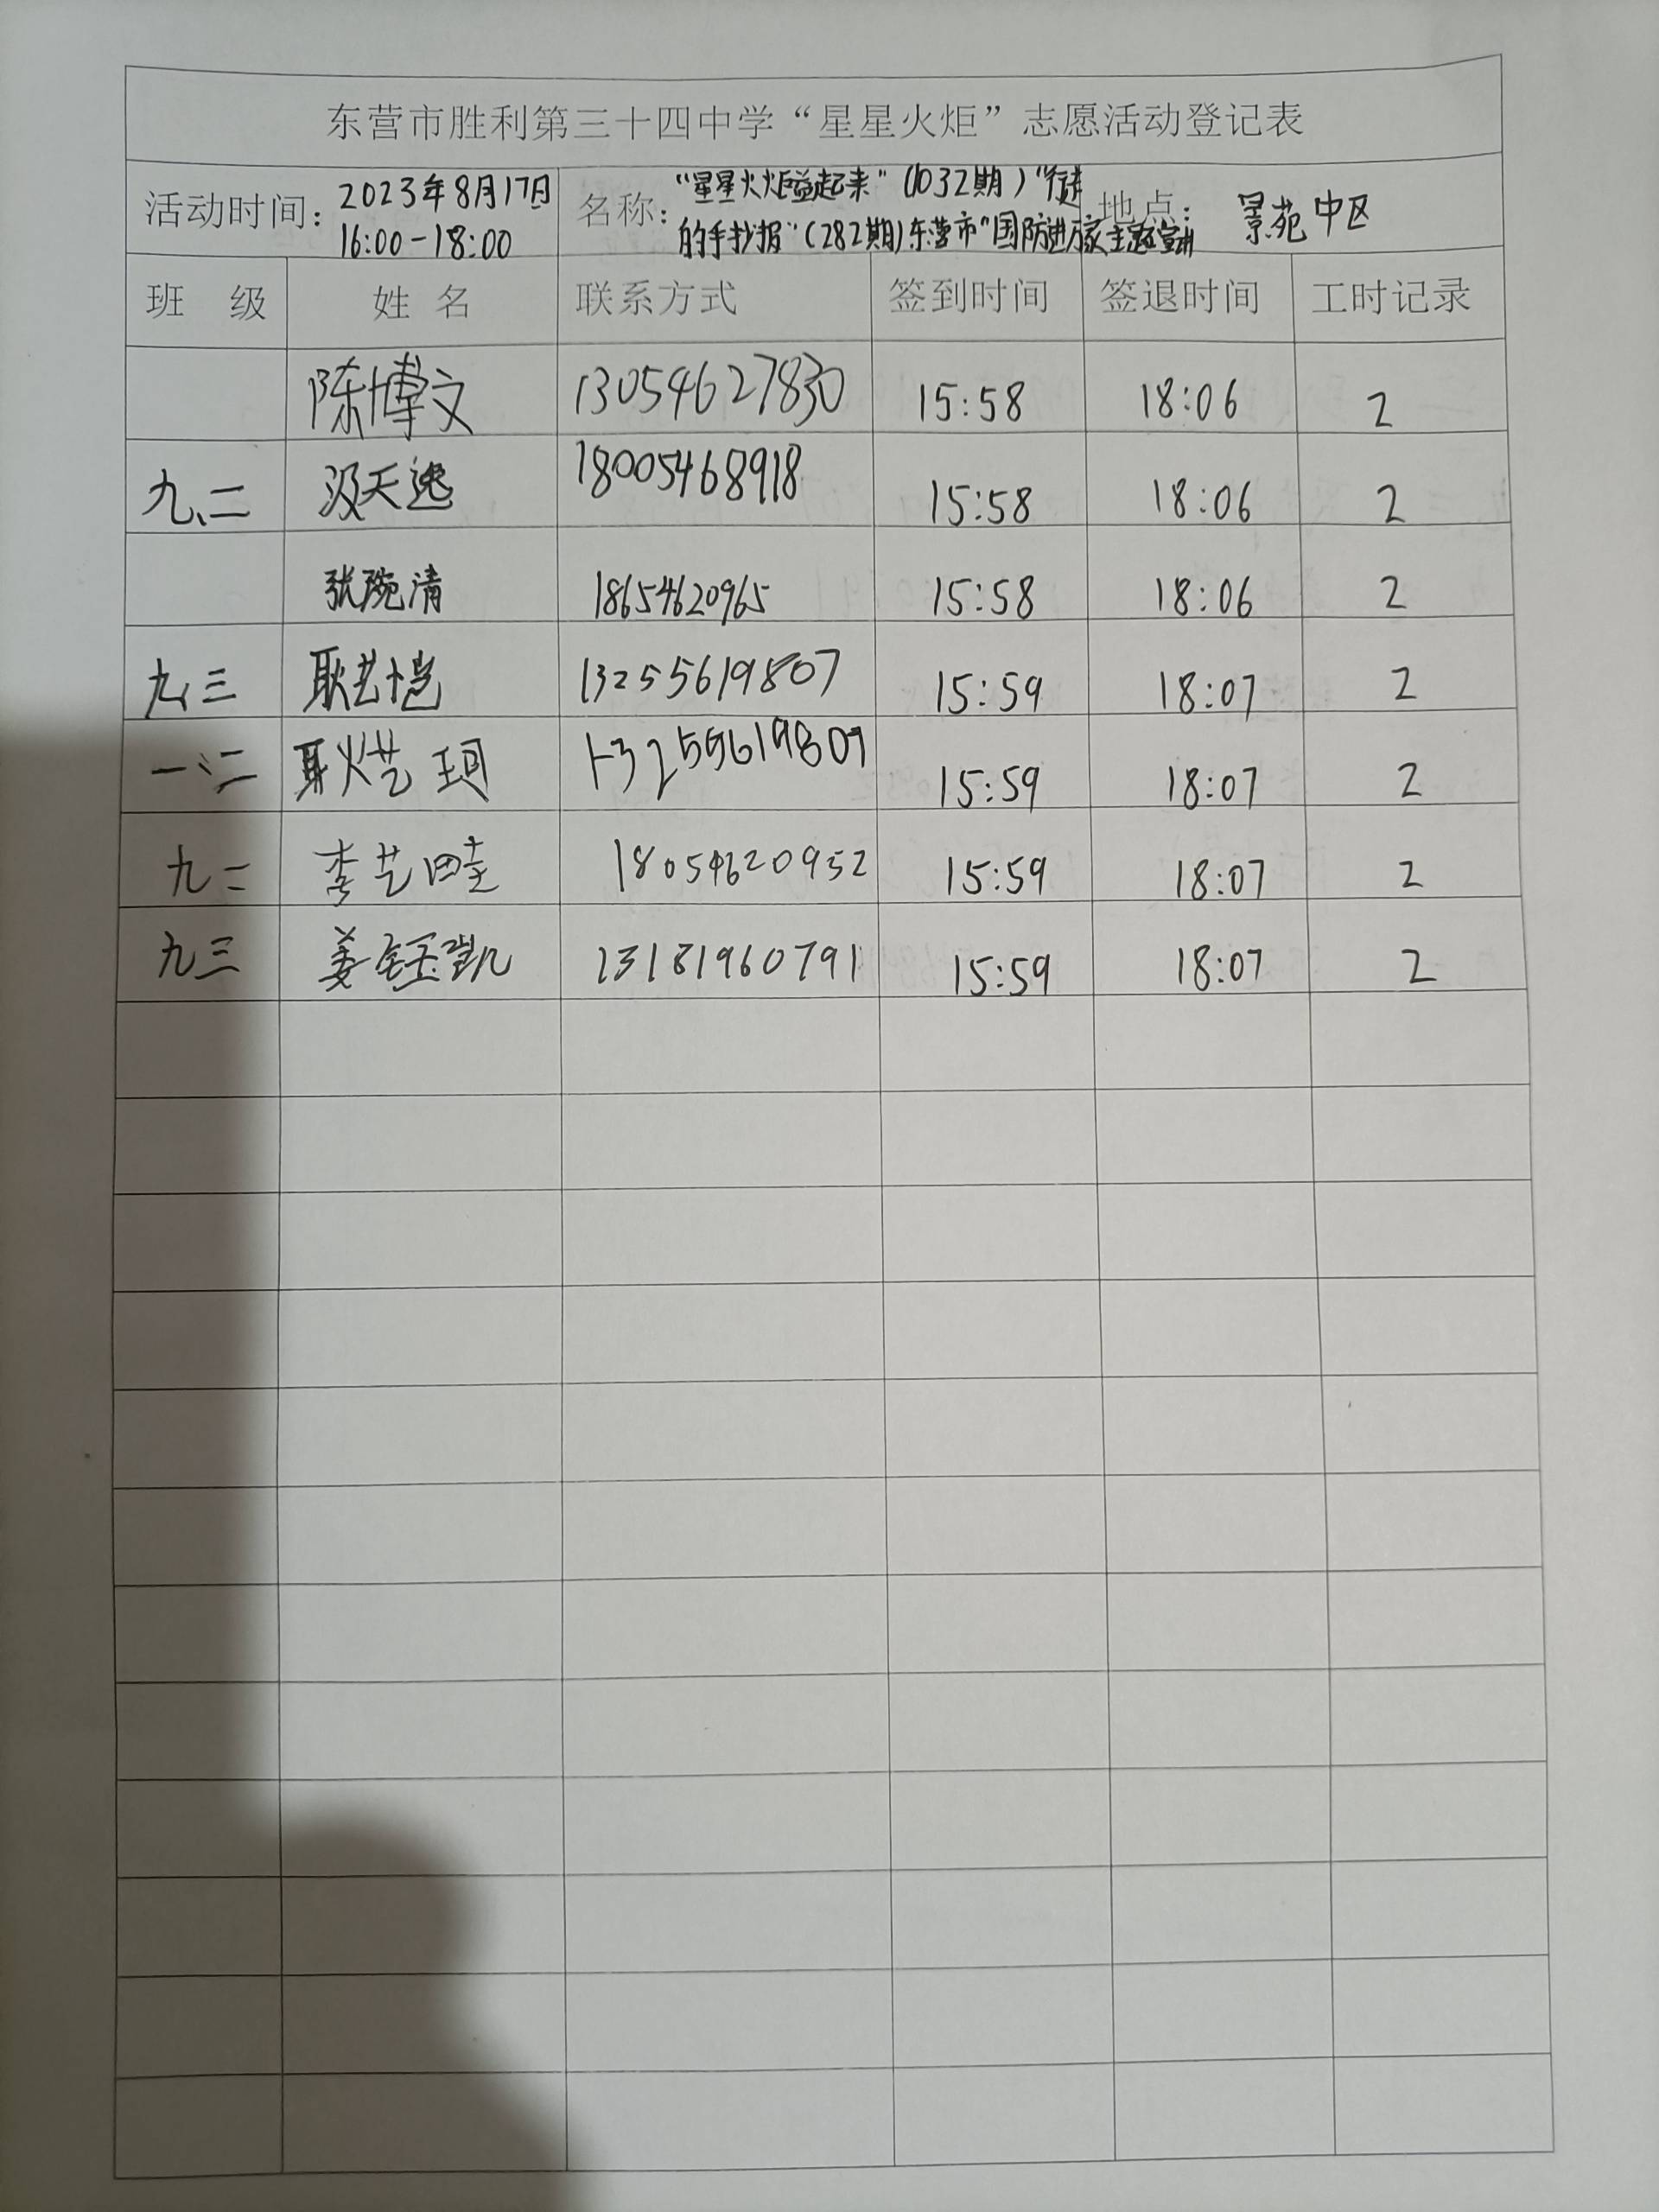 东营市胜利第三十四中学“星星火炬”志愿活动登记表
活动时间: 2023年8月17日 16:00-18:00
名称: “星星火炬益起来”(1032期)“行走
的手抄报”(282期)东营市“国防进万家主题宣讲
地点: 景苑中区
班 级 姓 名 联系方式 签到时间 签退时间 工时记录
陈博文 13054627830 15:58 18:06 2
九、二 汲天逸 18005468918 15:58 18:06 2
张琬清 18654620965 15:58 18:06 2
九、三 耿艺恺 13255619807 15:59 18:07 2
一、二 耿艺珂 13255619807 15:59 18:07 2
九二 李艺畦 18054620952 15:59 18:07 2
九三 姜钰凯 13181960791 15:59 18:07 2